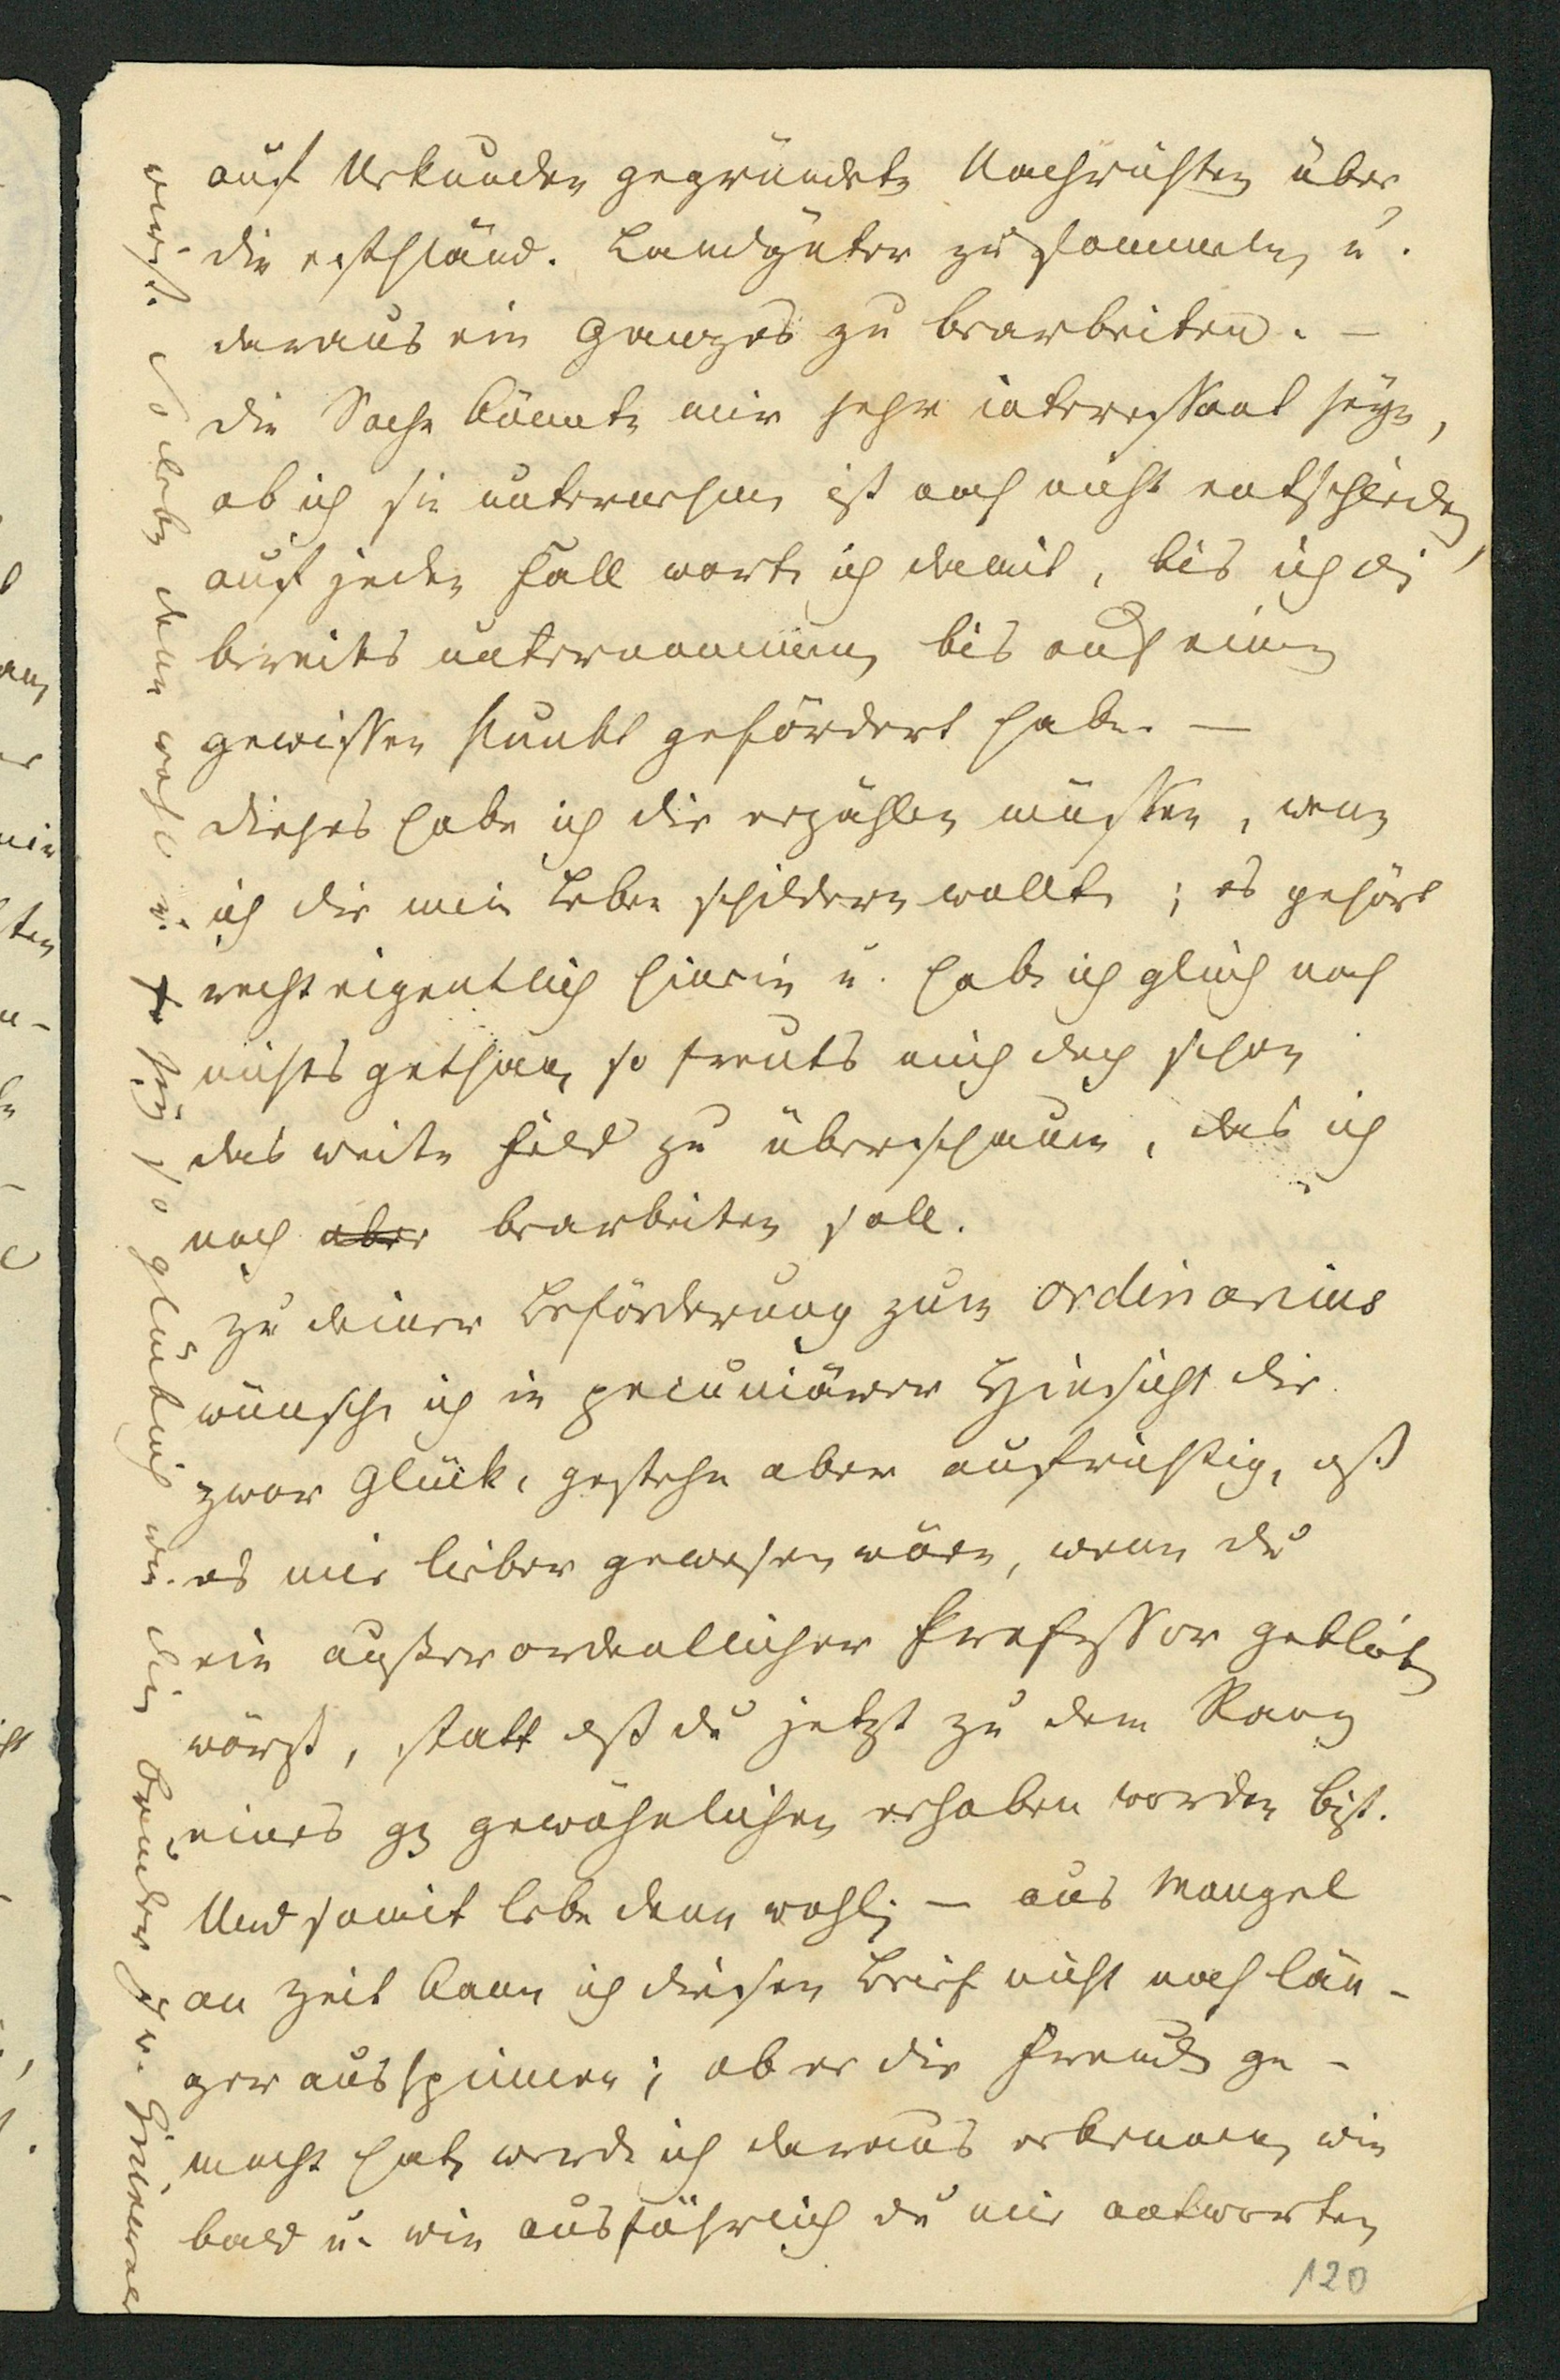 auf Urkunden gegründete Nachrichten über
die esthländ. Landgüter zu sammeln, u.
daraus ein Ganzes zu bearbeiten. —
Die Sache könnte mir sehr interessant seyn,
ob ich sie unternehme, ist noch nicht entschieden,
auf jeden Fall warte ich damit, bis ich die
bereits unternommene bis auf einen
gewissen Punkt gefördert habe. —
Dieses habe ich dir erzählen müssen, wenn
ich dir mein Leben schildern wollte; es gehört
recht eigentlich hinein u. habe ich gleich noch
nichts gethan, so freuts mich doch schon
das weite Feld zu überschauen, das ich
noch aber bearbeiten soll.
Zu deiner Beförderung zum ordinarius
wünsche ich in pecuniärer Hinsicht dir
zwar Glück, gestehe aber aufrichtig, dß
es mir lieber gewesen wäre, wenn du
ein außerordentlicher Professor geblieben
wärst, statt dß du jetzt zu dem Rang
eines gz gewöhnlichen erhoben worden bist.
Und somit lebe denn wohl; — aus Mangel
an Zeit kann ich diesen Brief nicht noch län-
ger ausspinnen; ob er dir Freude ge-
macht hat, werde ich daraus erkennen, wie
bald u. wie ausführlich du mir antworten
wirst. So lebe denn wohl u. sey so glücklich wie dein Bruder Fr.
120